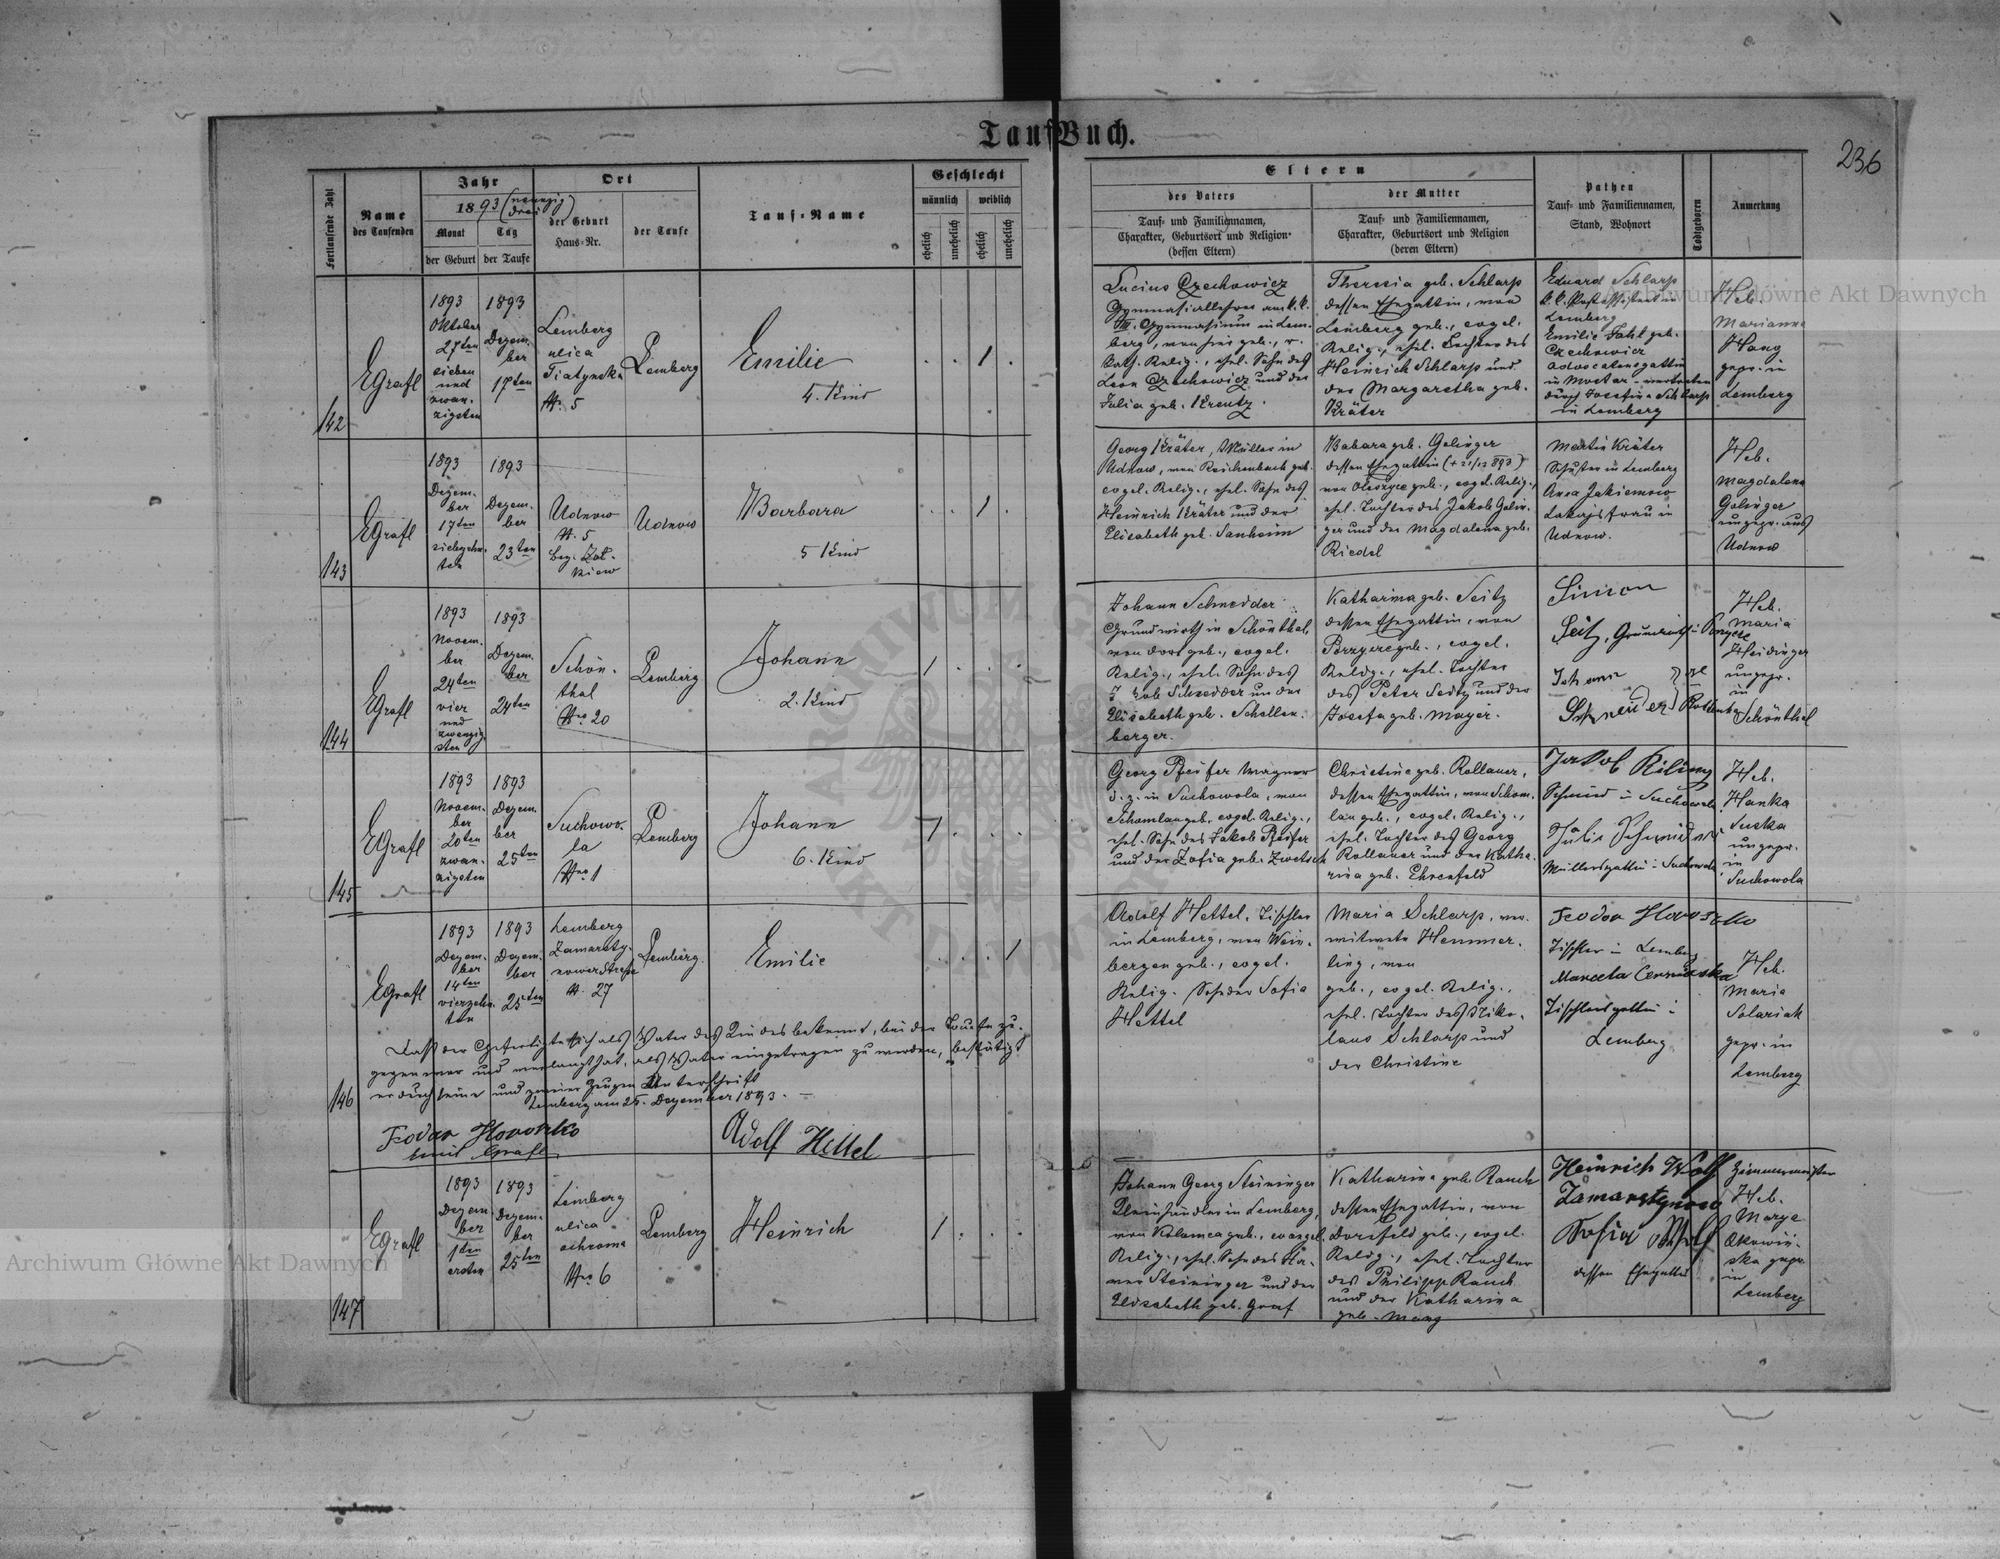 TaufBuch.
236
Fortlaufende Zahl
Name
des Taufenden
Jahr
1893 (neunzig
drei)
Monat
der Geburt
Tag
der Taufe
Ort
der Geburt
Haus-Nr.
der Taufe
Tauf-Name
Geschlecht
männlich
weiblich
ehelich
unehelich
ehelich
unehelich
Eltern
des Vaters
Tauf- und Familiennamen,
Charakter, Geburtsort und Religion
(dessen Eltern)
der Mutter
Tauf- und Familiennamen,
Charakter, Geburtsort und Religion
(deren Eltern)
Pathen
Tauf- und Familiennamen,
Stand, Wohnort
Todtgeboren
Anmerkung
142
EGrafl
1893
Oktober
27ten
sieben
und
zwan-
zigsten
1893
Dezem-
ber
17ten
Lemberg
ulica
Nr. 5
Lemberg
Emilie
4. Kind
1
Lucius Czechowicz
Gymnasiallehrer am k.k.
Gymnasium in Lem-
berg, von hier geb., r.
kath. Relig., ehel. Sohn des
Leon Czechowicz und der
Julia geb. Kreutz.
Theresia geb. Schlarp
dessen Ehegattin, von
Lemberg geb., evgel.
Relig., ehel. Tochter des
Heinrich Schlarp und
der Margaretha geb.
Kräter
Eduard Schlarp
k.k. Postassistent in
Lemberg
Emilie Fahl geb.
Czechowicz
Advocatensgattin
in Mostar - vertreten
durch Josefine Schlarp
in Lemberg
Heb.
Marianna
Haug
gepr. in
Lemberg
143
EGrafl
1893
Dezem-
ber
17ten
siebzehn-
ten
1893
Dezem-
ber
23ten
Udnow
N. 5
Bez. Zol-
kiew
Udnow
Barbara
5 Kind
1
Georg Kräter, Müller in
Udnow, von Reichenbach geb.
evgel. Relig., ehel. Sohn des
Heinrich Kräter und der
Elisabeth geb. Sanheim
Babara geb. Golinger
dessen Ehegattin (+ 21/12 893)
von Oleszyce geb., evgel. Relig.,
ehel. Tochter des Jakob Golin-
ger und der Magdalena geb.
Riedel
Martin Kräter
Schuster in Lemberg
Anna Jakimow
Lakajsfrau in
Udnow.
Heb.
Magdalena
Golinger
ungepr. aus
Udnow
144
EGrafl
1893
Novem-
ber
24ten
vier
und
zwanzig-
sten
1893
Dezem-
ber
24ten
Schön-
thal
Nro 20
Lemberg
Johann
2. Kind
1
Johann Schnedder
Grundwirth in Schönthal,
von dort geb., evgel.
Relig., ehel. Sohn des
Jakob Schnedder und der
Elisabeth geb. Schellen-
berger.
Katharina geb. Seitz
dessen Ehegattin, von
geb., evgel.
Relig., ehel. Tochter
des Peter Seitz und der
Josefa geb. Mayer.
Simon
Seitz,
Johann
Schneider
Heb.
Maria
Heidinger
ungepr.
in
Schönthal
145
EGrafl
1893
Novem-
ber
20ten
zwan-
zigsten
1893
Dezem-
ber
25ten
Suchowo-
la
Nro 1
Lemberg
Johann
6. Kind
1
Georg Pfeifer Wagner
d. z. in Suchowola, von
Schomlau geb. evgel. Relig.,
ehel. Sohn des Jakob Pfeifer
und der Zofia geb. Zwetsch
Christine geb. Rollauer,
dessen Ehegattin, von Schom-
lau geb., evgel. Relig.,
ehel. Tochter des Georg
Rollauer und der Katha-
rina geb. Ehrenfeld
Jakob Riling
Schmied in Suchowola
Julie Schmidt
Müllersgattin in Suchowola
Heb.
Hanka
Suska
ungepr.
in
Suchowola
146
EGrafl
1893
Dezem-
ber
14ten
vierzehn-
ten
1893
Dezem-
ber
25ten
Lemberg
Zamarsty-
nower Strasse
N. 27
Lemberg.
Emilie
1
Adolf Hettel, Tischler
in Lemberg, von Wein-
bergen geb., evgel.
Relig. Sohn der Sofia
Hettel
Maria Schlarp, ver-
witwete Hemmer-
ling, von
geb., evgel. Relig.,
ehel. Tochter des Niko-
laus Schlarp und
der Christine
Feodor Howoszko
Tischler in Lemberg
Marcela
Tischlersgattin in
Lemberg
Heb.
Maria
Solariak
gepr. in
Lemberg
Dass der Gefertigte sich als Vater des Kindes bekennt, bei der Taufe zu-
gegen war und verlangt hat, als Vater eingetragen zu werden, bestätigt
er durch seine und zweier Zeugen Unterschrift
Lemberg am 25. Dezember 1893.
Feodor Howoszko
Emil Grafl
Adolf Hettel
147
EGrafl
1893
Dezem-
ber
1ten
ersten
1893
Dezem-
ber
25ten
Lemberg
ulica
ochrona
Nro 6
Lemberg
Heinrich
1
Johann Georg Steininger
Kleinhändler in Lemberg,
von Kolomea geb., evangel.
Relig., ehel. Sohn des
Steininger und der
Elisabeth geb. Graf
Katharina geb. Rauch
dessen Ehegattin, von
Dornfeld geb., evgel.
Relig., ehel. Tochter
des Philipp Rauch
und der Katharina
geb. Mang
Heinrich Wolf Zimmermeister
Zamarstynow
Sofia Wolf
dessen Ehegattin
Heb.
Marya
gepr.
in
Lemberg
Archiwum Główne Akt Dawnych
Archiwum Główne Akt Dawnych